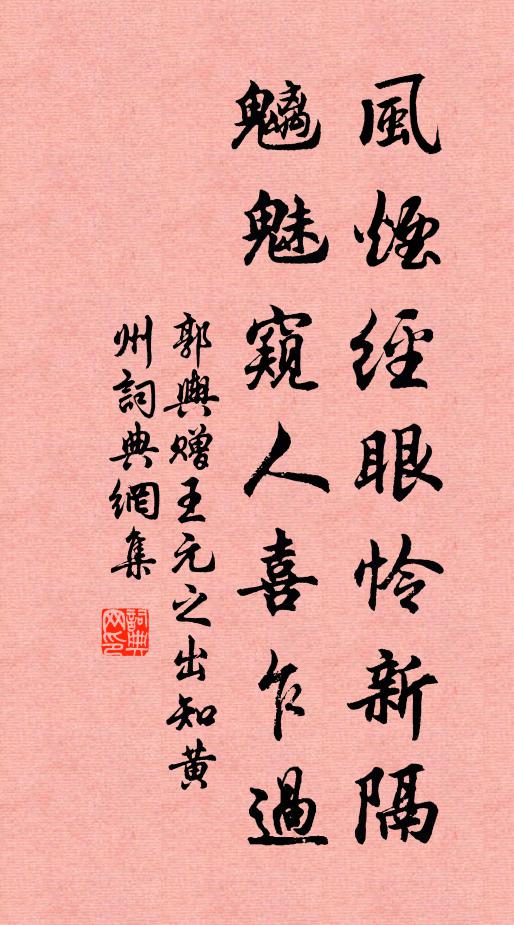 風煙經眼怜新隔
魑魅窺人喜乍過
郭與贈王元之出知黄
州詞典網集
詞典
网印